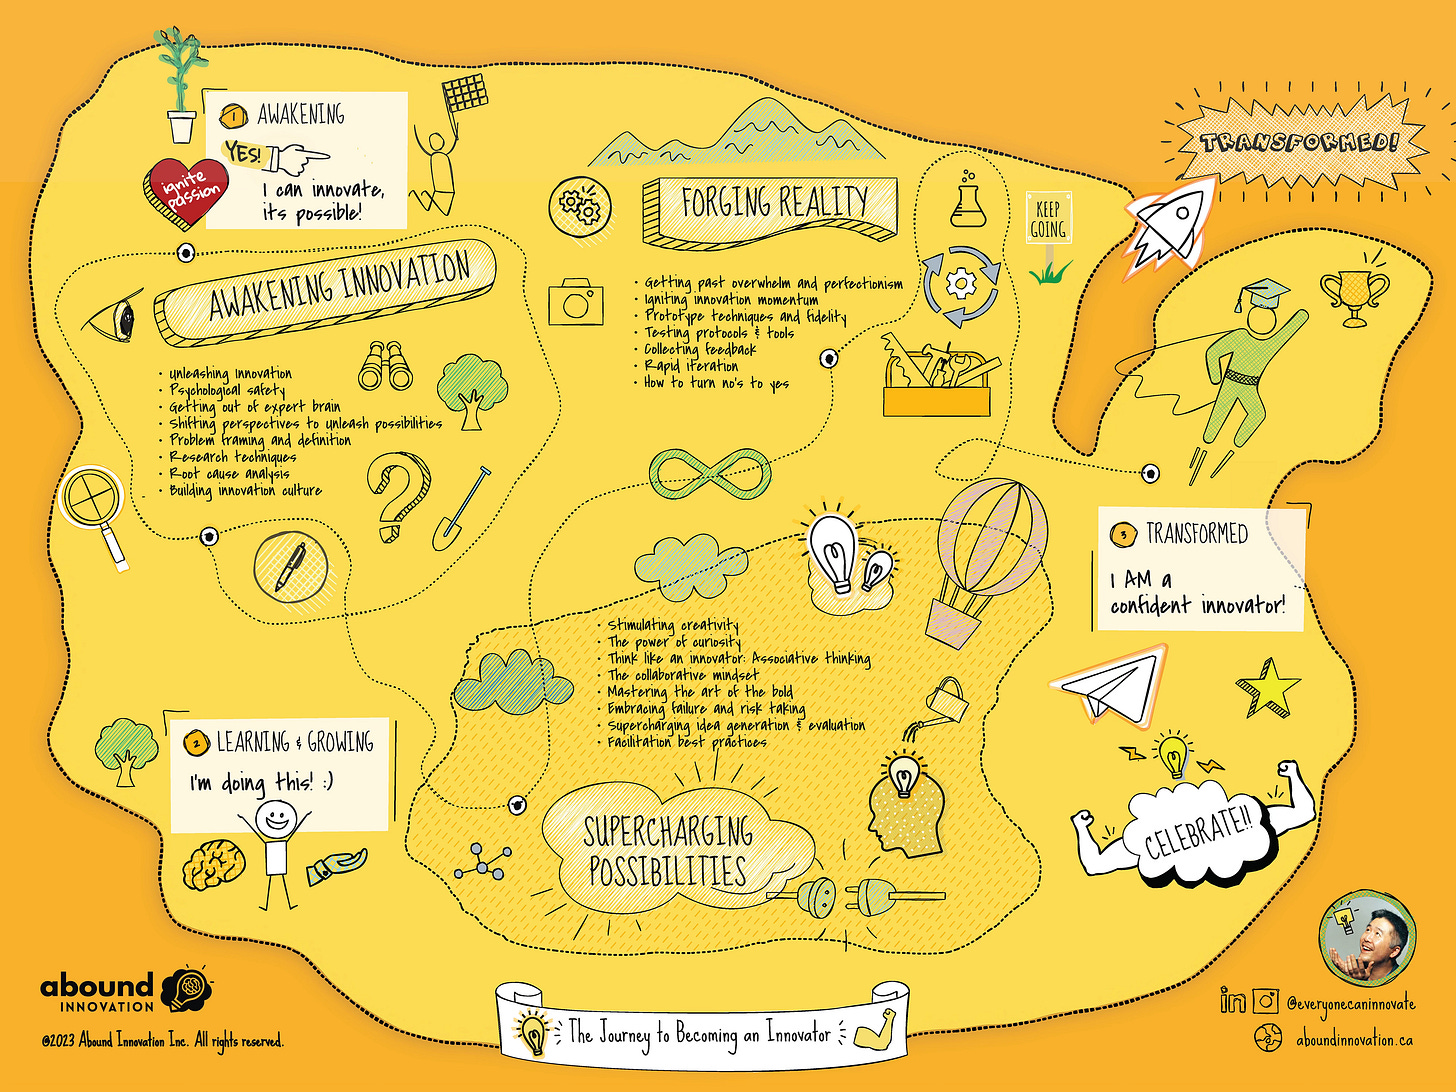 1 AWAKENING
YES!
I can innovate,
its possible!
ignite
passion
TRANSFORMED!
AWAKENING INNOVATION
• Unleashing innovation
• Psychological safety
• Getting out of expert brain
• Shifting perspectives to unleash possibilities
• Problem framing and definition
• Research techniques
• Root cause analysis
• Building innovation culture
FORGING REALITY
• Getting past overwhelm and perfectionism
• Igniting innovation momentum
• Prototype techniques and fidelity
• Testing protocols & tools
• Collecting feedback
• Rapid iteration
• How to turn no's to yes
KEEP
GOING
3 TRANSFORMED
I AM a
confident innovator!
• Stimulating creativity
• The power of curiosity
• Think like an innovator: Associative thinking
• The collaborative mindset
• Mastering the art of the bold
• Embracing failure and risk taking
• Supercharging idea generation & evaluation
• Facilitation best practices
SUPERCHARGING
POSSIBILITIES
2 LEARNING & GROWING
I'm doing this! :)
CELEBRATE!!
abound
INNOVATION
©2023 Abound Innovation Inc. All rights reserved.
The Journey to Becoming an Innovator
in @everyonecaninnovate
aboundinnovation.ca